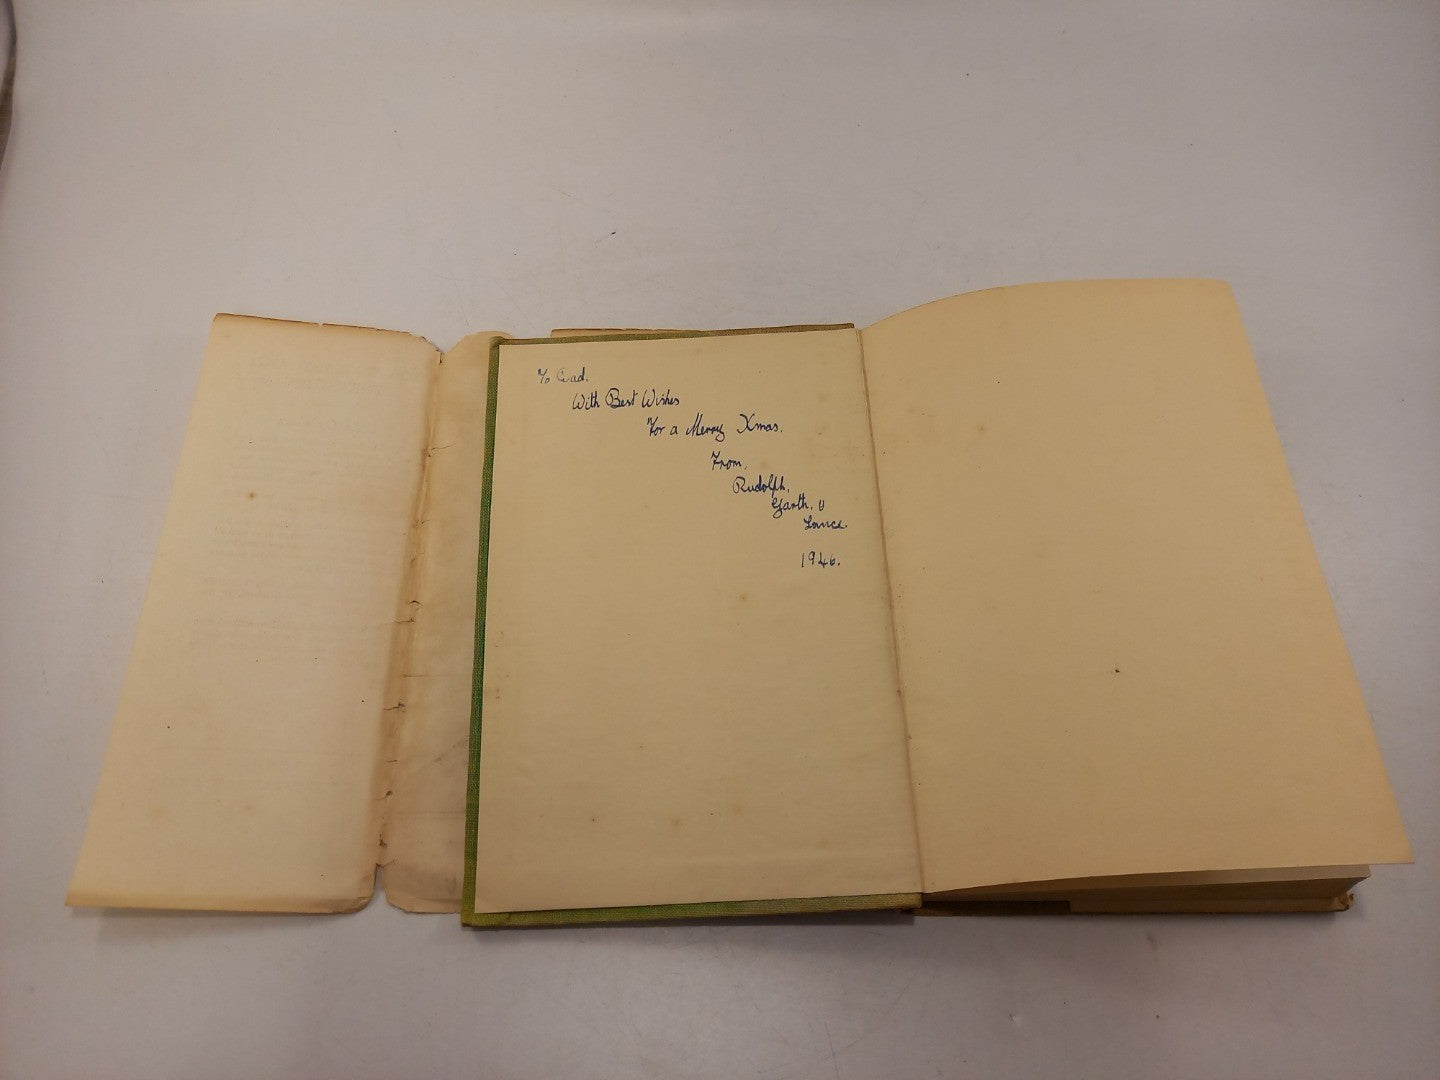 To Dad.
With Best Wishes
For a Merry Xmas.
From,
Rudolph,
Garth, &
Lance.
1946.